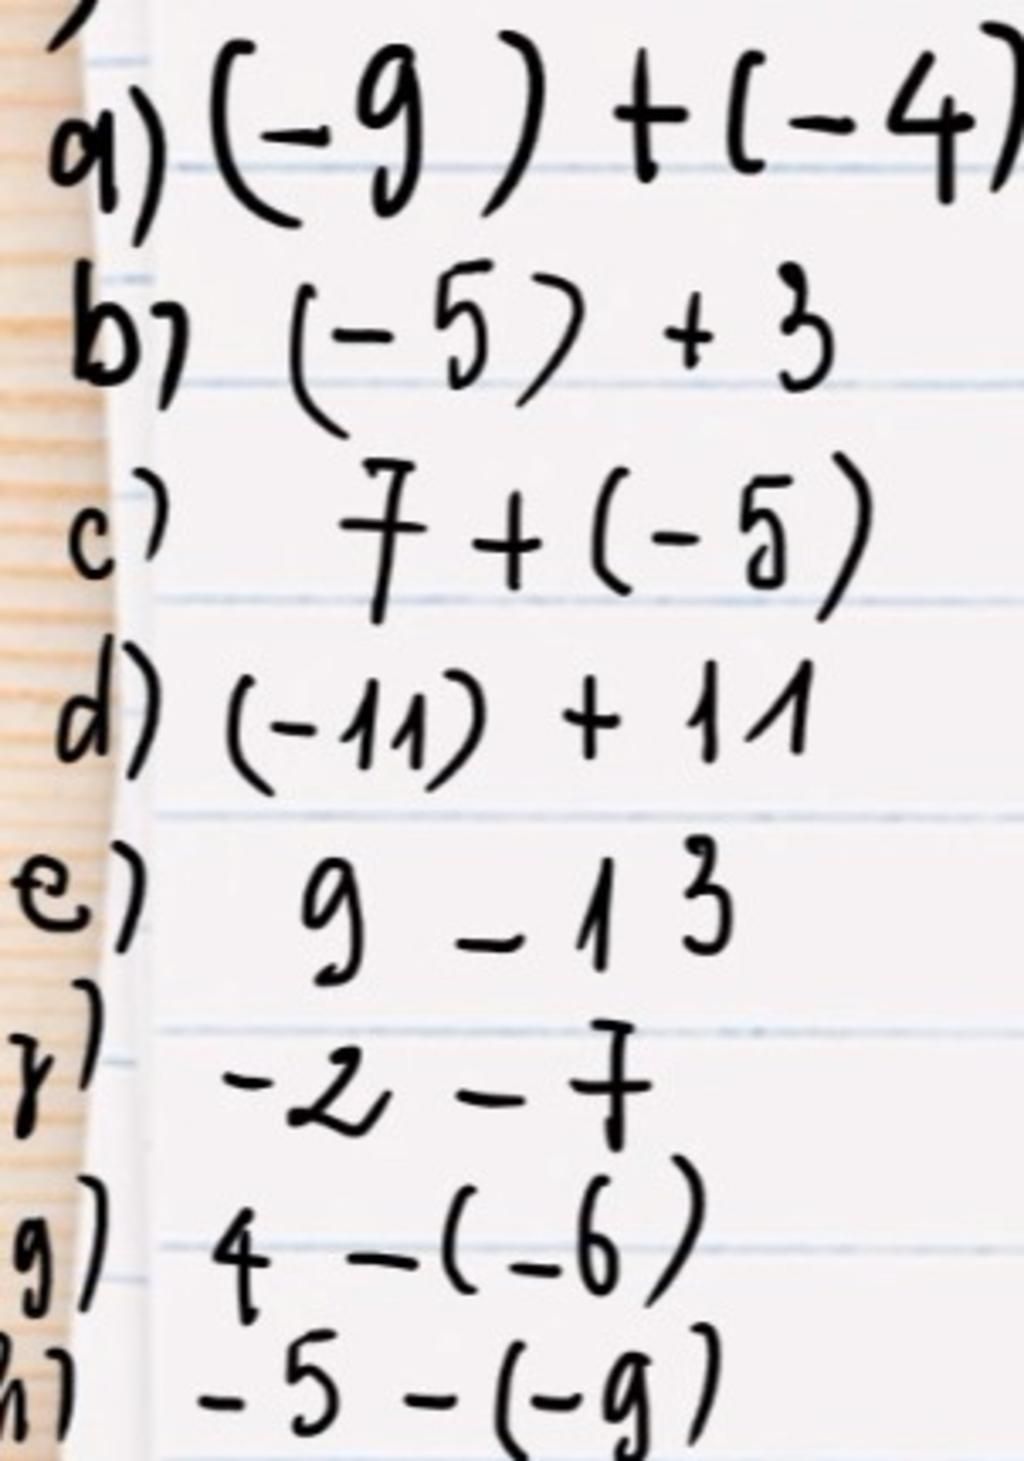 a) (-9) + (-4)
b) (-5) + 3
c) 7 + (-5)
d) (-11) + 11
e) 9 - 13
f) -2 - 7
g) 4 - (-6)
h) -5 - (-9)